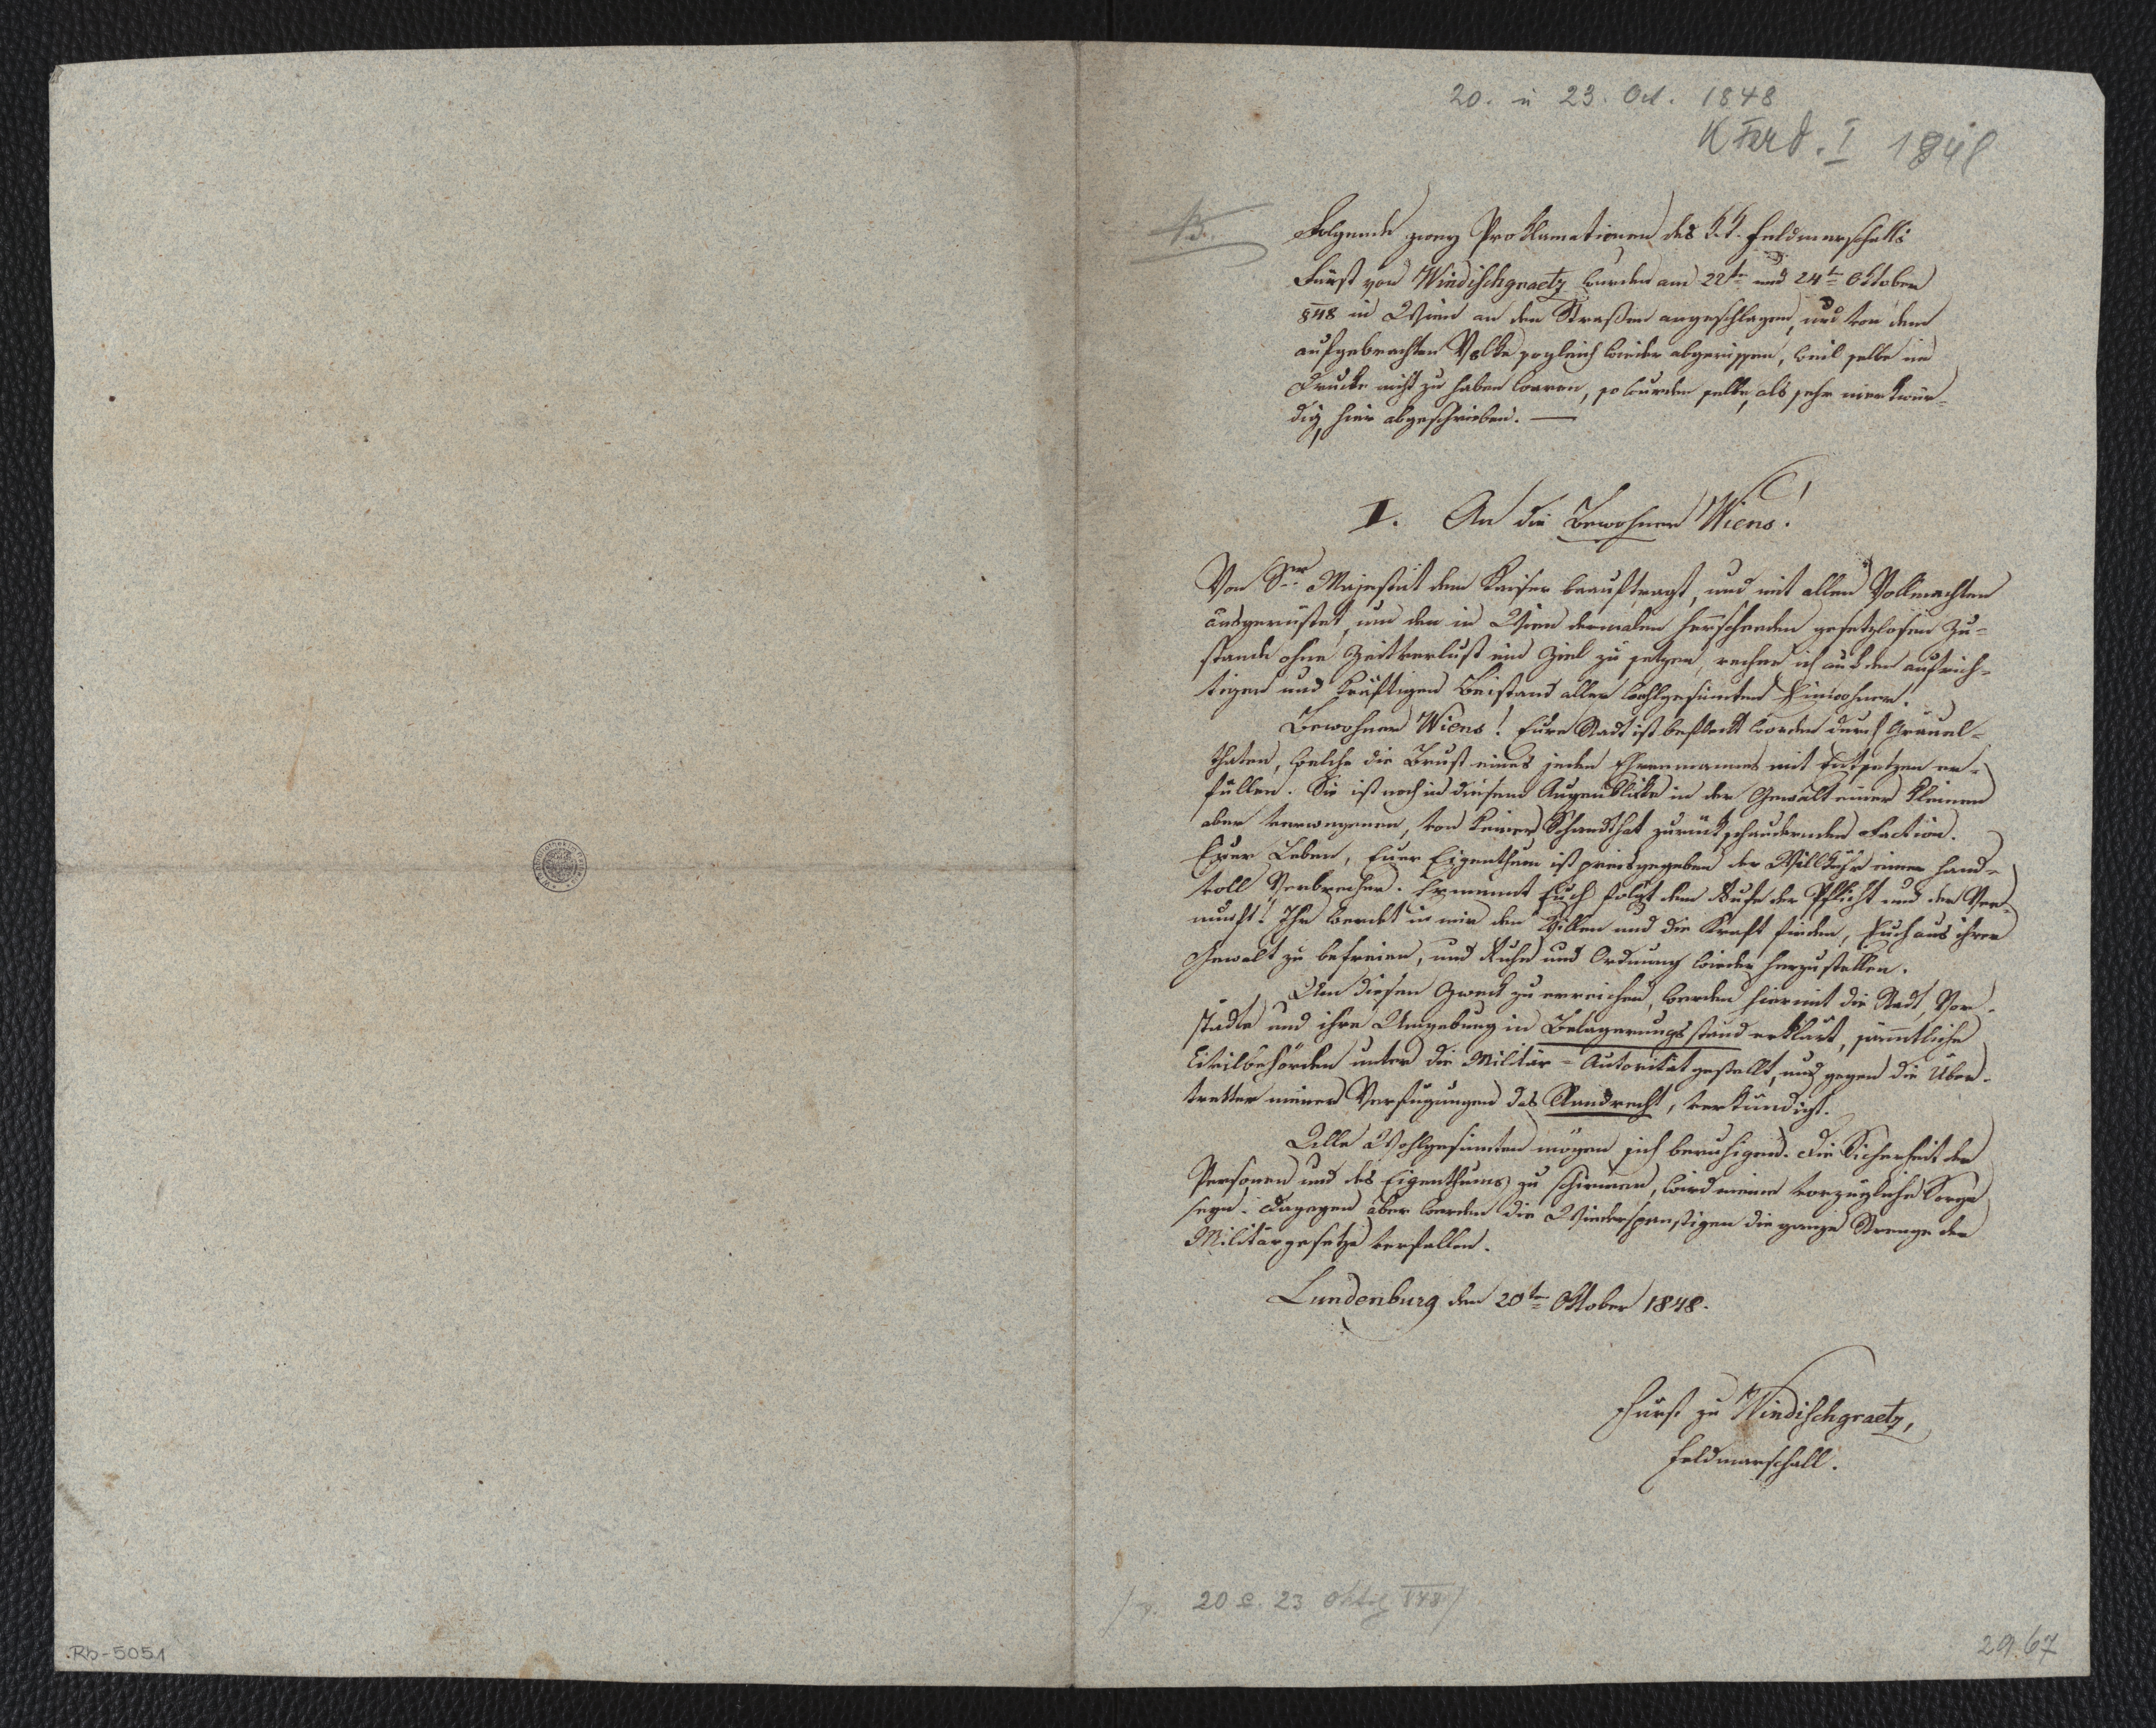 20. u 23. Oct. 1848
K Ferd. I 1848
Folgende zwey Proklamationen des k.k. Feldmarschalls
Fürst von Windischgraetz wurden am 22ten und 24ten Oktober
848 in Wien an den Straßen angeschlagen, und von dem
aufgebrachten Volke sogleich wieder abgerissen, weil selbe im
Drucke nicht zu haben waren, so wurden selbe, als sehr merkwür-
dig, hier abgeschrieben. —
I. An die Bewohner Wiens!
Von Sr. Majestät dem Kaiser beauftragt, und mit allen Vollmachten
ausgerüstet, um den in Wien dermalen herrschenden gesetzlosen Zu-
stande ohne Zeitverlust ein Ziel zu setzen, rechne ich auf den aufrich-
tigen und kräftigen Beistand aller wohlgesinnten Einwohner.
Bewohner Wiens! Eure Stadt ist befleckt worden durch Gräuel-
thaten, welche die Brust eines jeden Ehrenmannes mit Entsetzen er-
füllen. Sie ist noch in diesem Augenblicke in der Gewalt einer kleinen
aber verwegenen, von keiner Schandthat zurückschaudernden Faction.
Euer Leben, Euer Eigenthum ist preisgegeben der Willkühr einer Hand-
voll Verbrecher. Ermannt Euch folgt dem Rufe der Pflicht und der Ver-
nunft! Ihr werdet in mir den Willen und die Kraft finden, Euch aus ihrer
Gewalt zu befreien, und Ruhe und Ordnung wieder herzustellen.
Um diesen Zweck zu erreichen, werden hiermit die Stadt, Vor-
städte und ihre Umgebung in Belagerungsstand erklärt, sämmtliche
Civilbehörden unter die Militär-Autorität gestellt, und gegen die Über-
tretter meiner Verfügungen das Standrecht, verkündigt.
Alle Wohlgesinnten mögen sich beruhigen. Die Sicherheit der
Personen und des Eigenthums zu schirmen, wird meine vorzügliche Sorge
seyn. Dagegen aber werden die Wiederspenstigen die ganze Strenge der
Militärgesetze verfallen.
Lundenburg den 20ten Oktober 1848.
Fürst zu Windischgraetz,
Feldmarschall.
20 &. 23 Oktob 848
Rb-5051
29.67